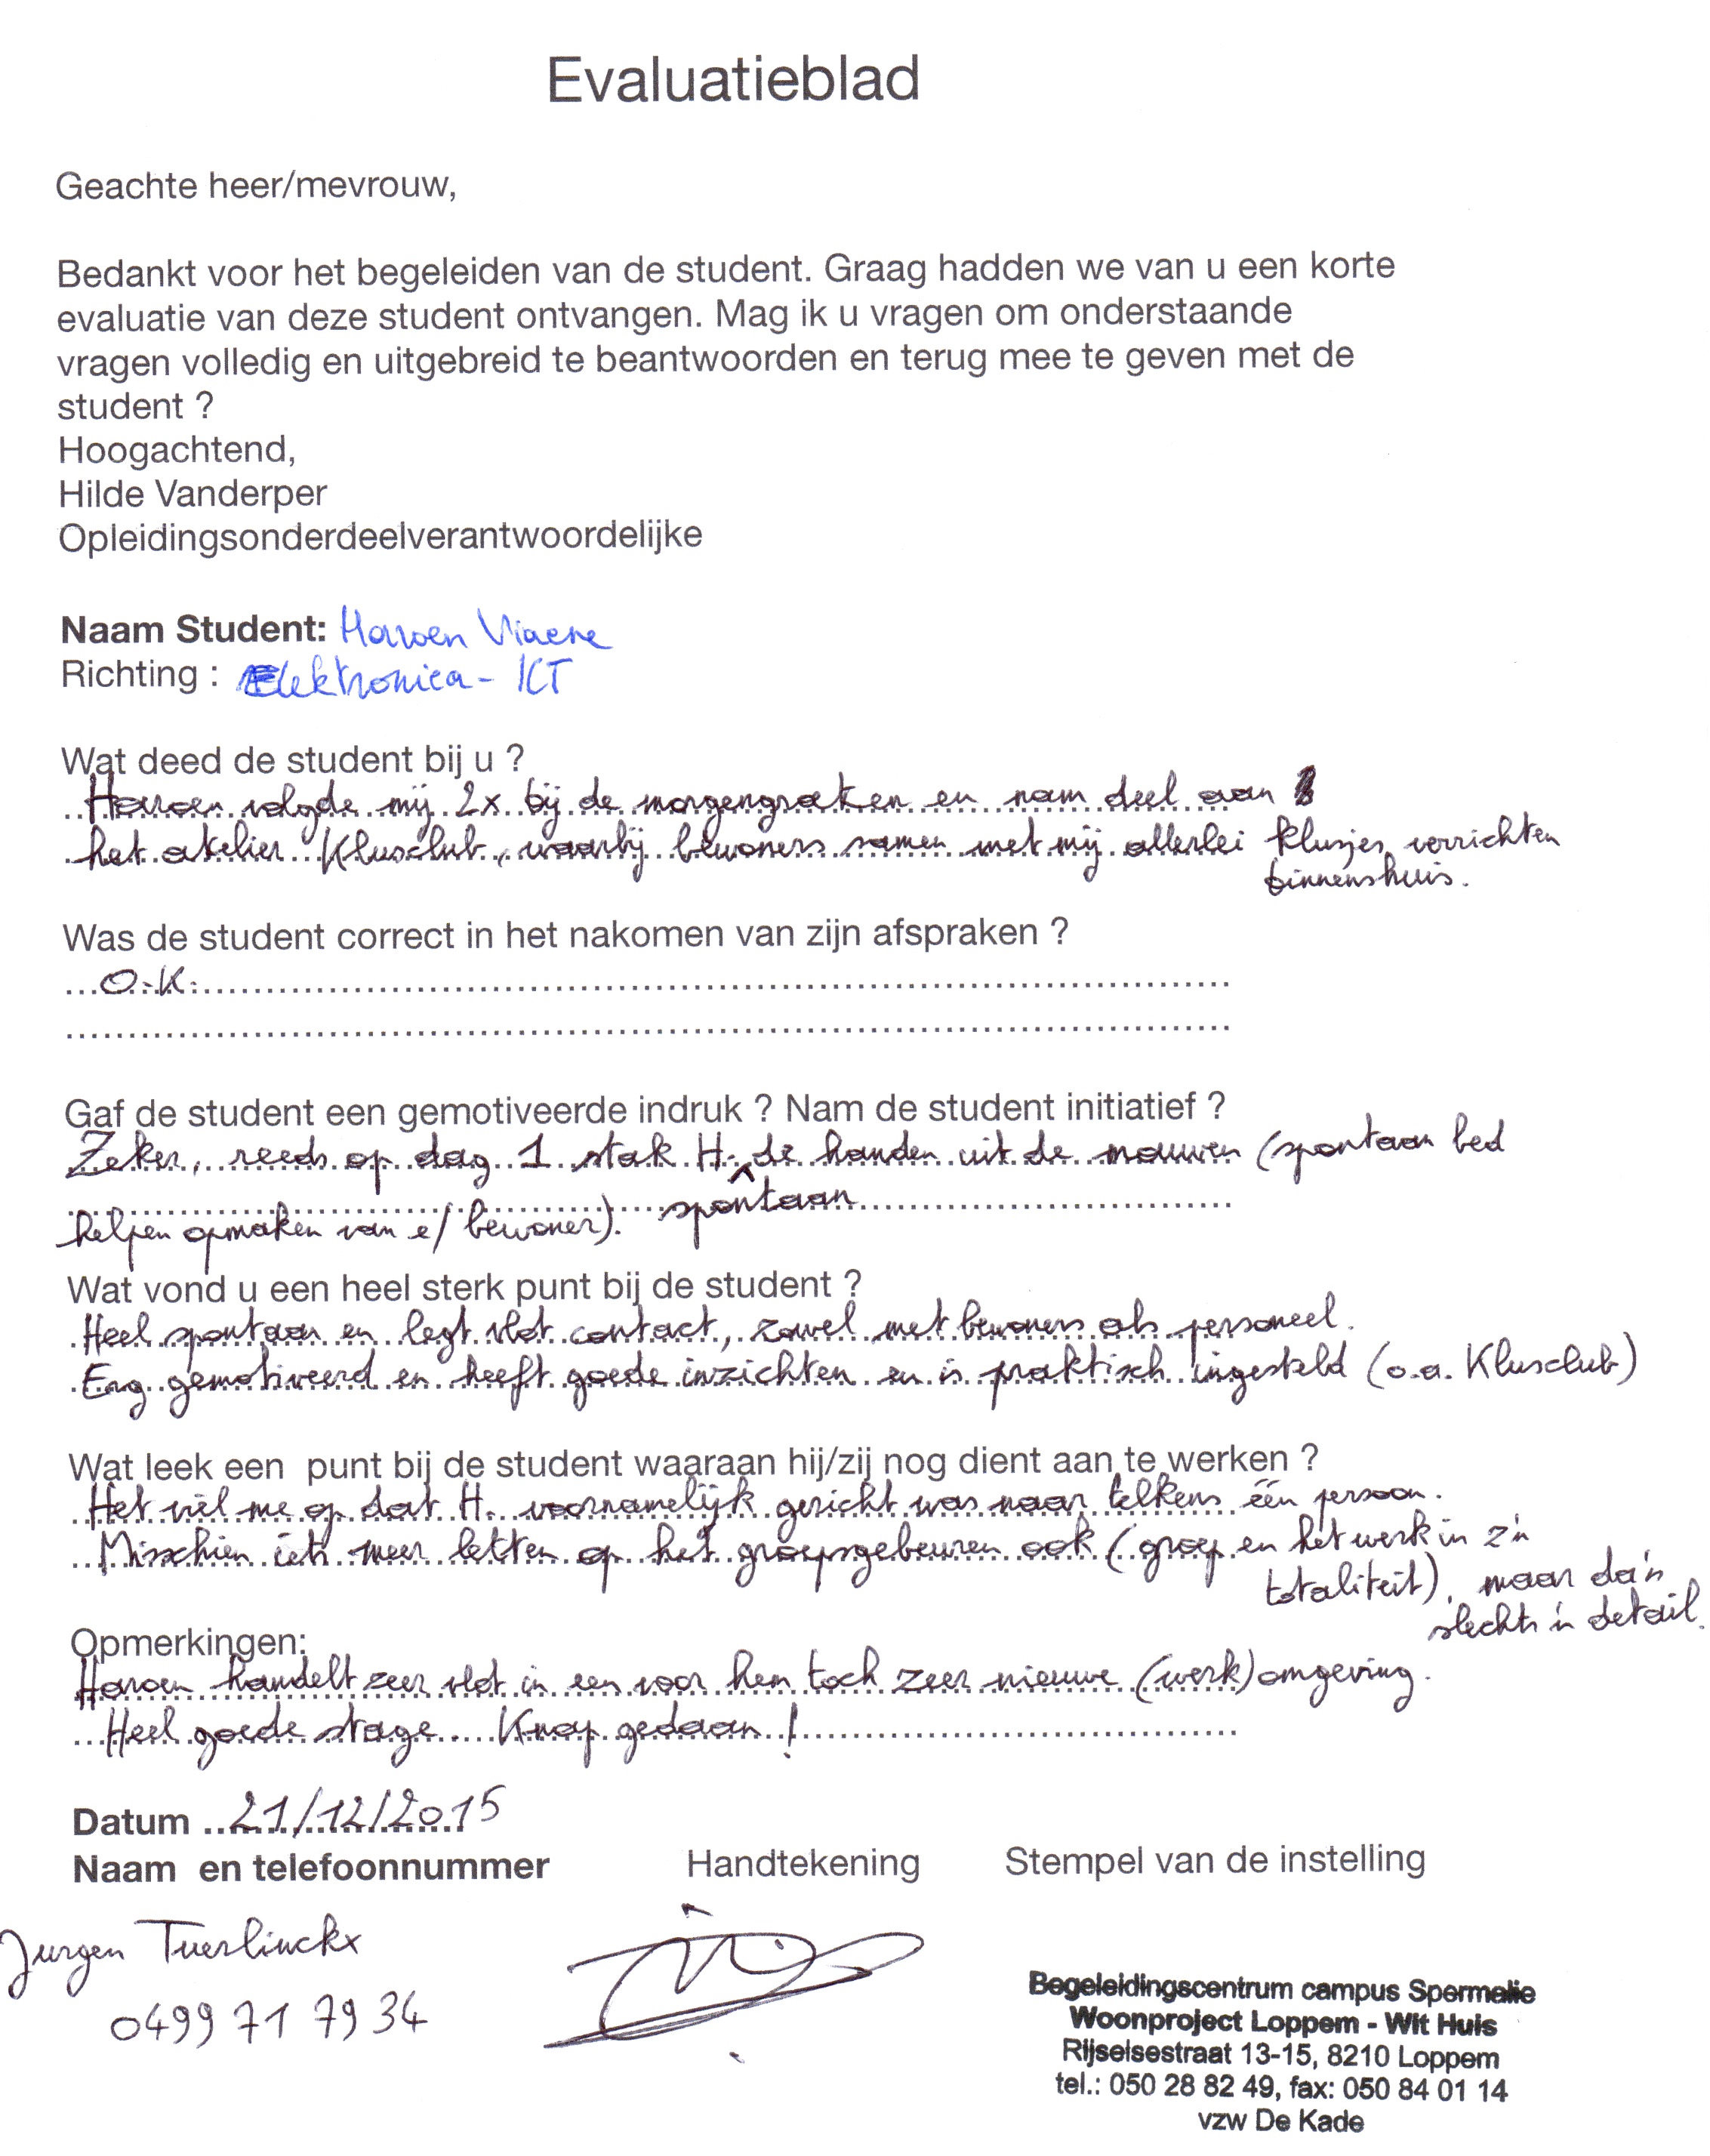 Evaluatieblad
Geachte heer/mevrouw,
Bedankt voor het begeleiden van de student. Graag hadden we van u een korte
evaluatie van deze student ontvangen. Mag ik u vragen om onderstaande
vragen volledig en uitgebreid te beantwoorden en terug mee te geven met de
student ?
Hoogachtend,
Hilde Vanderper
Opleidingsonderdeelverantwoordelijke
Naam Student: Haroen Viaene
Richting : Elektronica - ICT
Wat deed de student bij u ?
Haroen volgde mij 2x bij de morgengroeten en nam deel aan
het atelier Klusclub, waarbij bewoners samen met mij allerlei klusjes verrichten
binnenshuis.
Was de student correct in het nakomen van zijn afspraken ?
O.K.
Gaf de student een gemotiveerde indruk ? Nam de student initiatief ?
Zeker, reeds op dag 1 stak H. spontaan de handen uit de mouwen (spontaan bed
helpen opmaken van e/ bewoner).
Wat vond u een heel sterk punt bij de student ?
Heel spontaan en legt vlot contact, zowel met bewoners als personeel.
Erg gemotiveerd en heeft goede inzichten en is praktisch ingesteld (o.a. Klusclub)
Wat leek een punt bij de student waaraan hij/zij nog dient aan te werken ?
Het viel me op dat H. voornamelijk gericht was naar telkens één persoon.
Misschien iets meer letten op het groepsgebeuren ook (groep en het werk in z'n
totaliteit), maar da's
slechts 'n detail.
Opmerkingen:
Haroen handelt zeer vlot in een voor hem toch zeer nieuwe (werk)omgeving.
Heel goede stage. Knap gedaan !
Datum 21/12/2015
Naam en telefoonnummer Handtekening Stempel van de instelling
Jurgen Tuerlinckx
0499 71 79 34
Begeleidingscentrum campus Spermalie
Woonproject Loppem - Wit Huis
Rijselsestraat 13-15, 8210 Loppem
tel.: 050 28 82 49, fax: 050 84 01 14
vzw De Kade